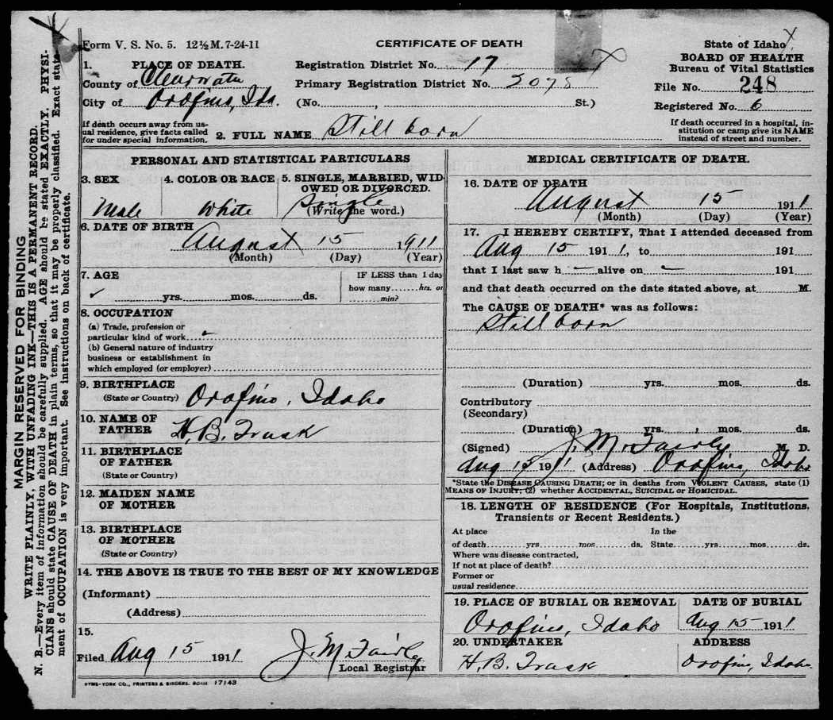 Form V. S. No. 5. 12½M. 7-24-11
CERTIFICATE OF DEATH
State of Idaho X
BOARD OF HEALTH
Bureau of Vital Statistics
1. PLACE OF DEATH.
County of Clearwater
City of Orofino, Ida.
Registration District No. 17 X
Primary Registration District No. 3078
(No. , St.)
File No. 248
Registered No. 6
If death occurs away from us-
ual residence, give facts called
for under special information.
2. FULL NAME Still born
If death occurred in a hospital, in-
stitution or camp give its NAME
instead of street and number.
PERSONAL AND STATISTICAL PARTICULARS
3. SEX
Male
4. COLOR OR RACE
White
5. SINGLE, MARRIED, WID
OWED OR DIVORCED.
Single
(Write the word.)
6. DATE OF BIRTH
August 15 1911
(Month) (Day) (Year)
7. AGE
yrs. mos. ds.
IF LESS than 1 day
how many hrs. or
min?
8. OCCUPATION
(a) Trade, profession or
particular kind of work
(b) General nature of industry
business or establishment in
which employed (or employer)
9. BIRTHPLACE
(State or Country) Orofino, Idaho
10. NAME OF
FATHER H. B. Trask
11. BIRTHPLACE
OF FATHER
(State or Country)
12. MAIDEN NAME
OF MOTHER
13. BIRTHPLACE
OF MOTHER
(State or Country)
14. THE ABOVE IS TRUE TO THE BEST OF MY KNOWLEDGE
(Informant)
(Address)
15.
Filed Aug 15 1911 J. M. Fairly
Local Registrar
SYMS-YORK CO., PRINTERS & BINDERS, BOISE 17143
MEDICAL CERTIFICATE OF DEATH.
16. DATE OF DEATH
August 15 1911
(Month) (Day) (Year)
17. I HEREBY CERTIFY, That I attended deceased from
Aug 15 1911, to 191
that I last saw h — alive on — 191
and that death occurred on the date stated above, at M.
The CAUSE OF DEATH* was as follows:
Still born
(Duration) yrs. mos. ds.
Contributory
(Secondary)
(Duration) yrs. mos. ds.
(Signed) J. M. Fairly M. D.
Aug 15 1911 (Address) Orofino, Idaho
*State the DISEASE CAUSING DEATH; or in deaths from VIOLENT CAUSES, state (1)
MEANS OF INJURY; (2) whether ACCIDENTAL, SUICIDAL or HOMICIDAL.
18. LENGTH OF RESIDENCE (For Hospitals, Institutions,
Transients or Recent Residents.)
At place In the
of death yrs. mos. ds. State yrs. mos. ds.
Where was disease contracted,
If not at place of death?
Former or
usual residence
19. PLACE OF BURIAL OR REMOVAL
Orofino, Idaho
DATE OF BURIAL
Aug 15 1911
20. UNDERTAKER
H. B. Trask
ADDRESS
Orofino, Idaho
MARGIN RESERVED FOR BINDING
WRITE PLAINLY, WITH UNFADING INK—THIS IS A PERMANENT RECORD.
N. B.—Every item of information should be carefully supplied. AGE should be stated EXACTLY, PHYSI-
CIANS should state CAUSE OF DEATH in plain terms, so that it may be properly classified. Exact state-
ment of OCCUPATION is very important. See instructions on back of certificate.